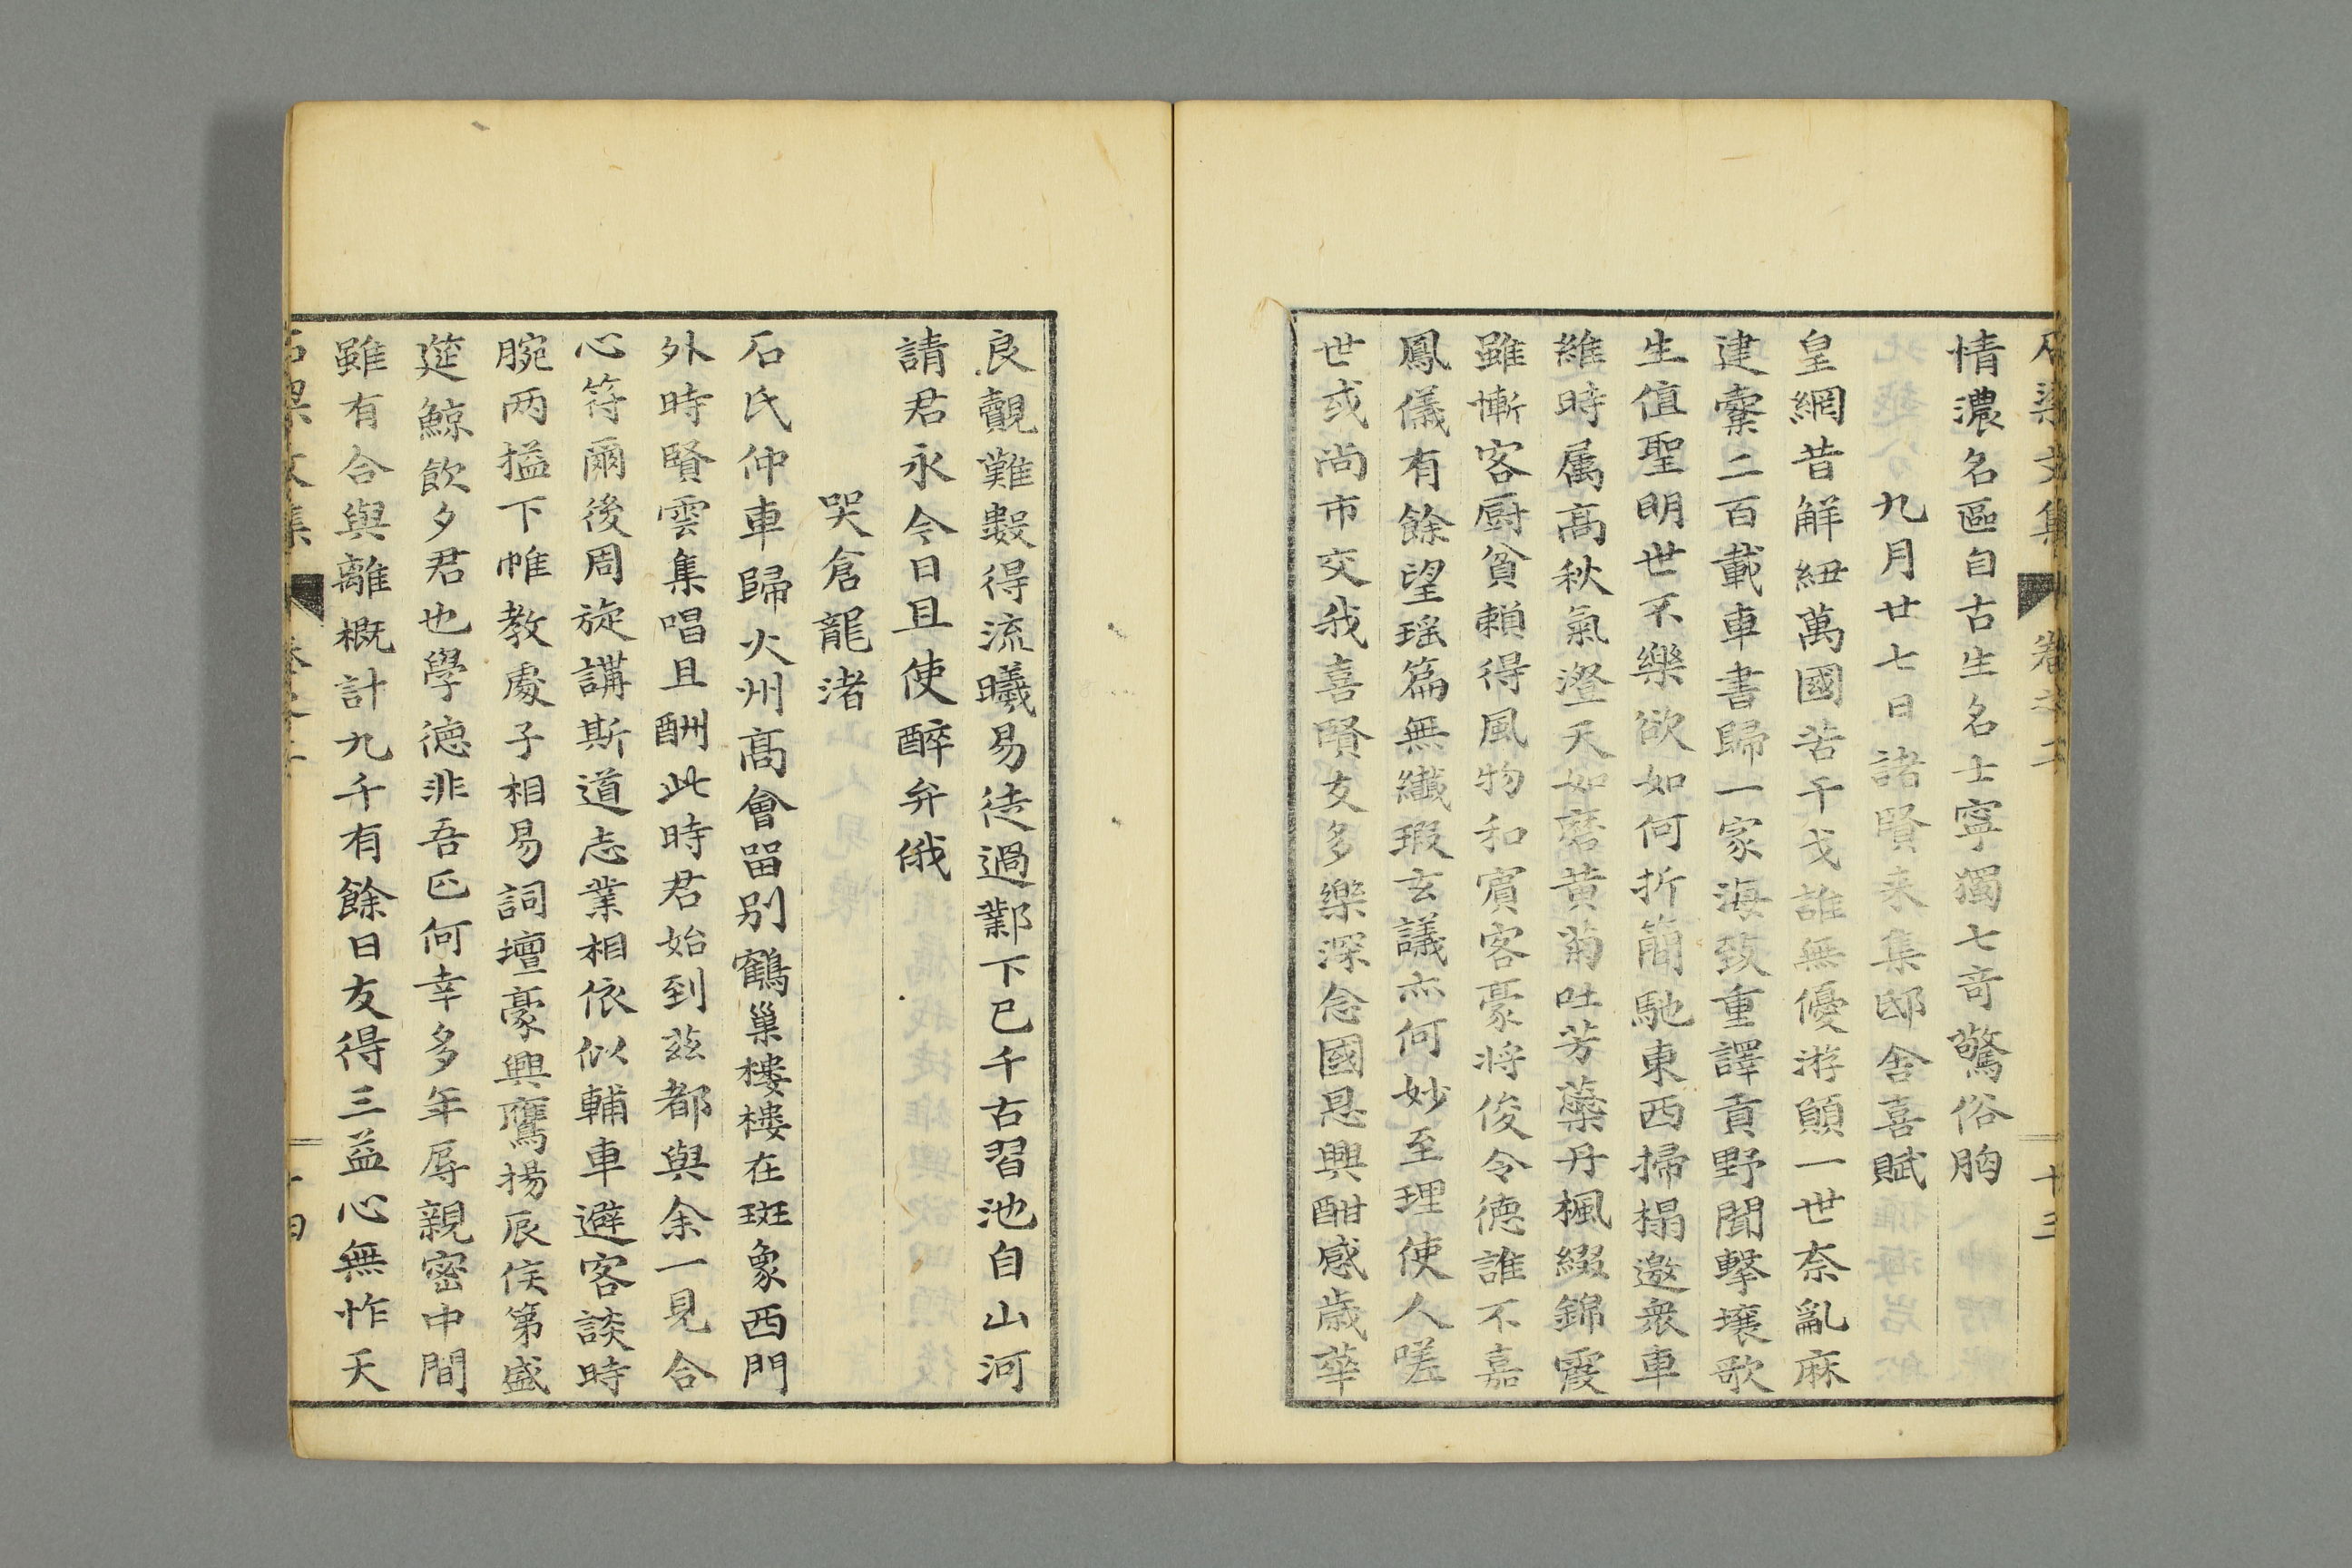 石梁文集 卷之二 十三
情濃名區自古生名士寧獨七奇驚俗胸
九月廿七日諸賢来集邸舍喜賦
皇綱昔解紐萬國苦干戈誰無優游願一世奈亂麻
建櫜二百載車書歸一家海致重譯貢野聞擊壤歌
生值聖明世不樂欲如何折簡馳東西掃榻邀衆車
維時属高秋氣澄天如磨黄菊吐芳蘂丹楓綴錦霞
雖慚客厨貧頼得風物和賓客豪将俊令德誰不嘉
鳳儀有餘望瑶篇無纖瑕玄議亦何妙至理使人嗟
世或尚市交我喜賢友多樂深念國恩興酣感歳華
良覿難數得流曦易徒過鄴下已千古習池自山河
請君永今日且使醉弁俄
哭倉龍渚
石氏仲車歸火州高會留别鶴巢樓樓在斑象西門
外時賢雲集唱且酬此時君始到兹都與余一見合
心符爾後周旋講斯道志業相依似輔車避客談時
腕两搤下帷教處子相易詞壇豪興鷹揚辰侯第盛
筵鯨飲夕君也學徳非吾匹何幸多年辱親密中間
雖有合與離概計九千有餘日友得三益心無怍天
石梁文集 卷之二 十四